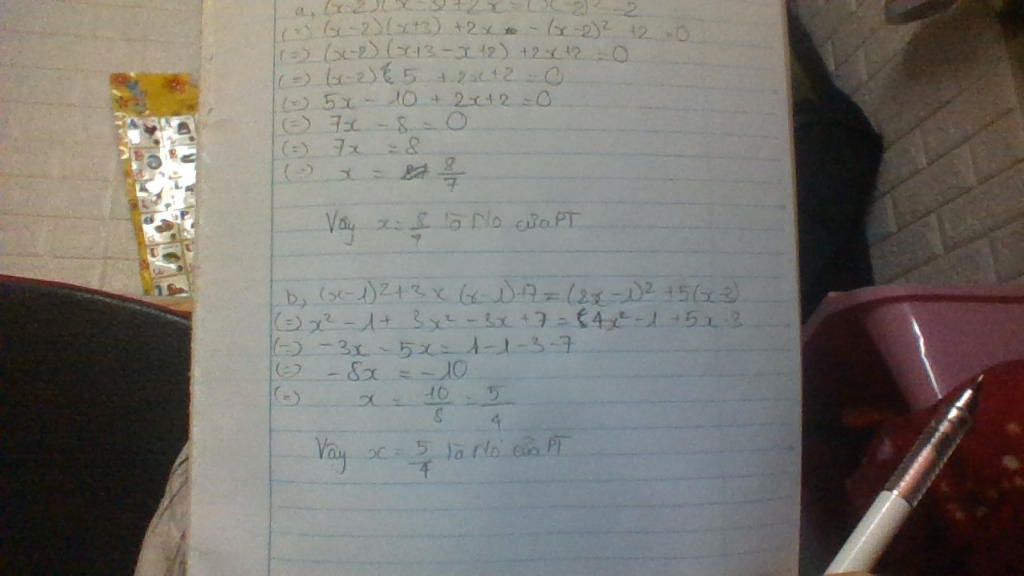 a, (x-2)(x-3)+2x=(x-2)²-2
(=) (x-2)(x+3) +2x - (x-2)² +2 =0
(=) (x-2)(x+3-x+2) +2x+2 =0
(=) (x-2) 5 +2x+2 =0
(=) 5x - 10 + 2x+2 =0
(=) 7x - 8 = 0
(=) 7x = 8
(=) x = 8/7
Vậy x = 8/7 là No của PT
b, (x-1)²+3x(x-1)+7=(2x-1)²+5(x-3)
(=) x²-1+ 3x²-3x+7 = 4x²-1 +5x-3
(=) -3x - 5x = 1-1-3-7
(=) -8x = -10
(=) x = 10/8 = 5/4
Vậy x = 5/4 là No của PT